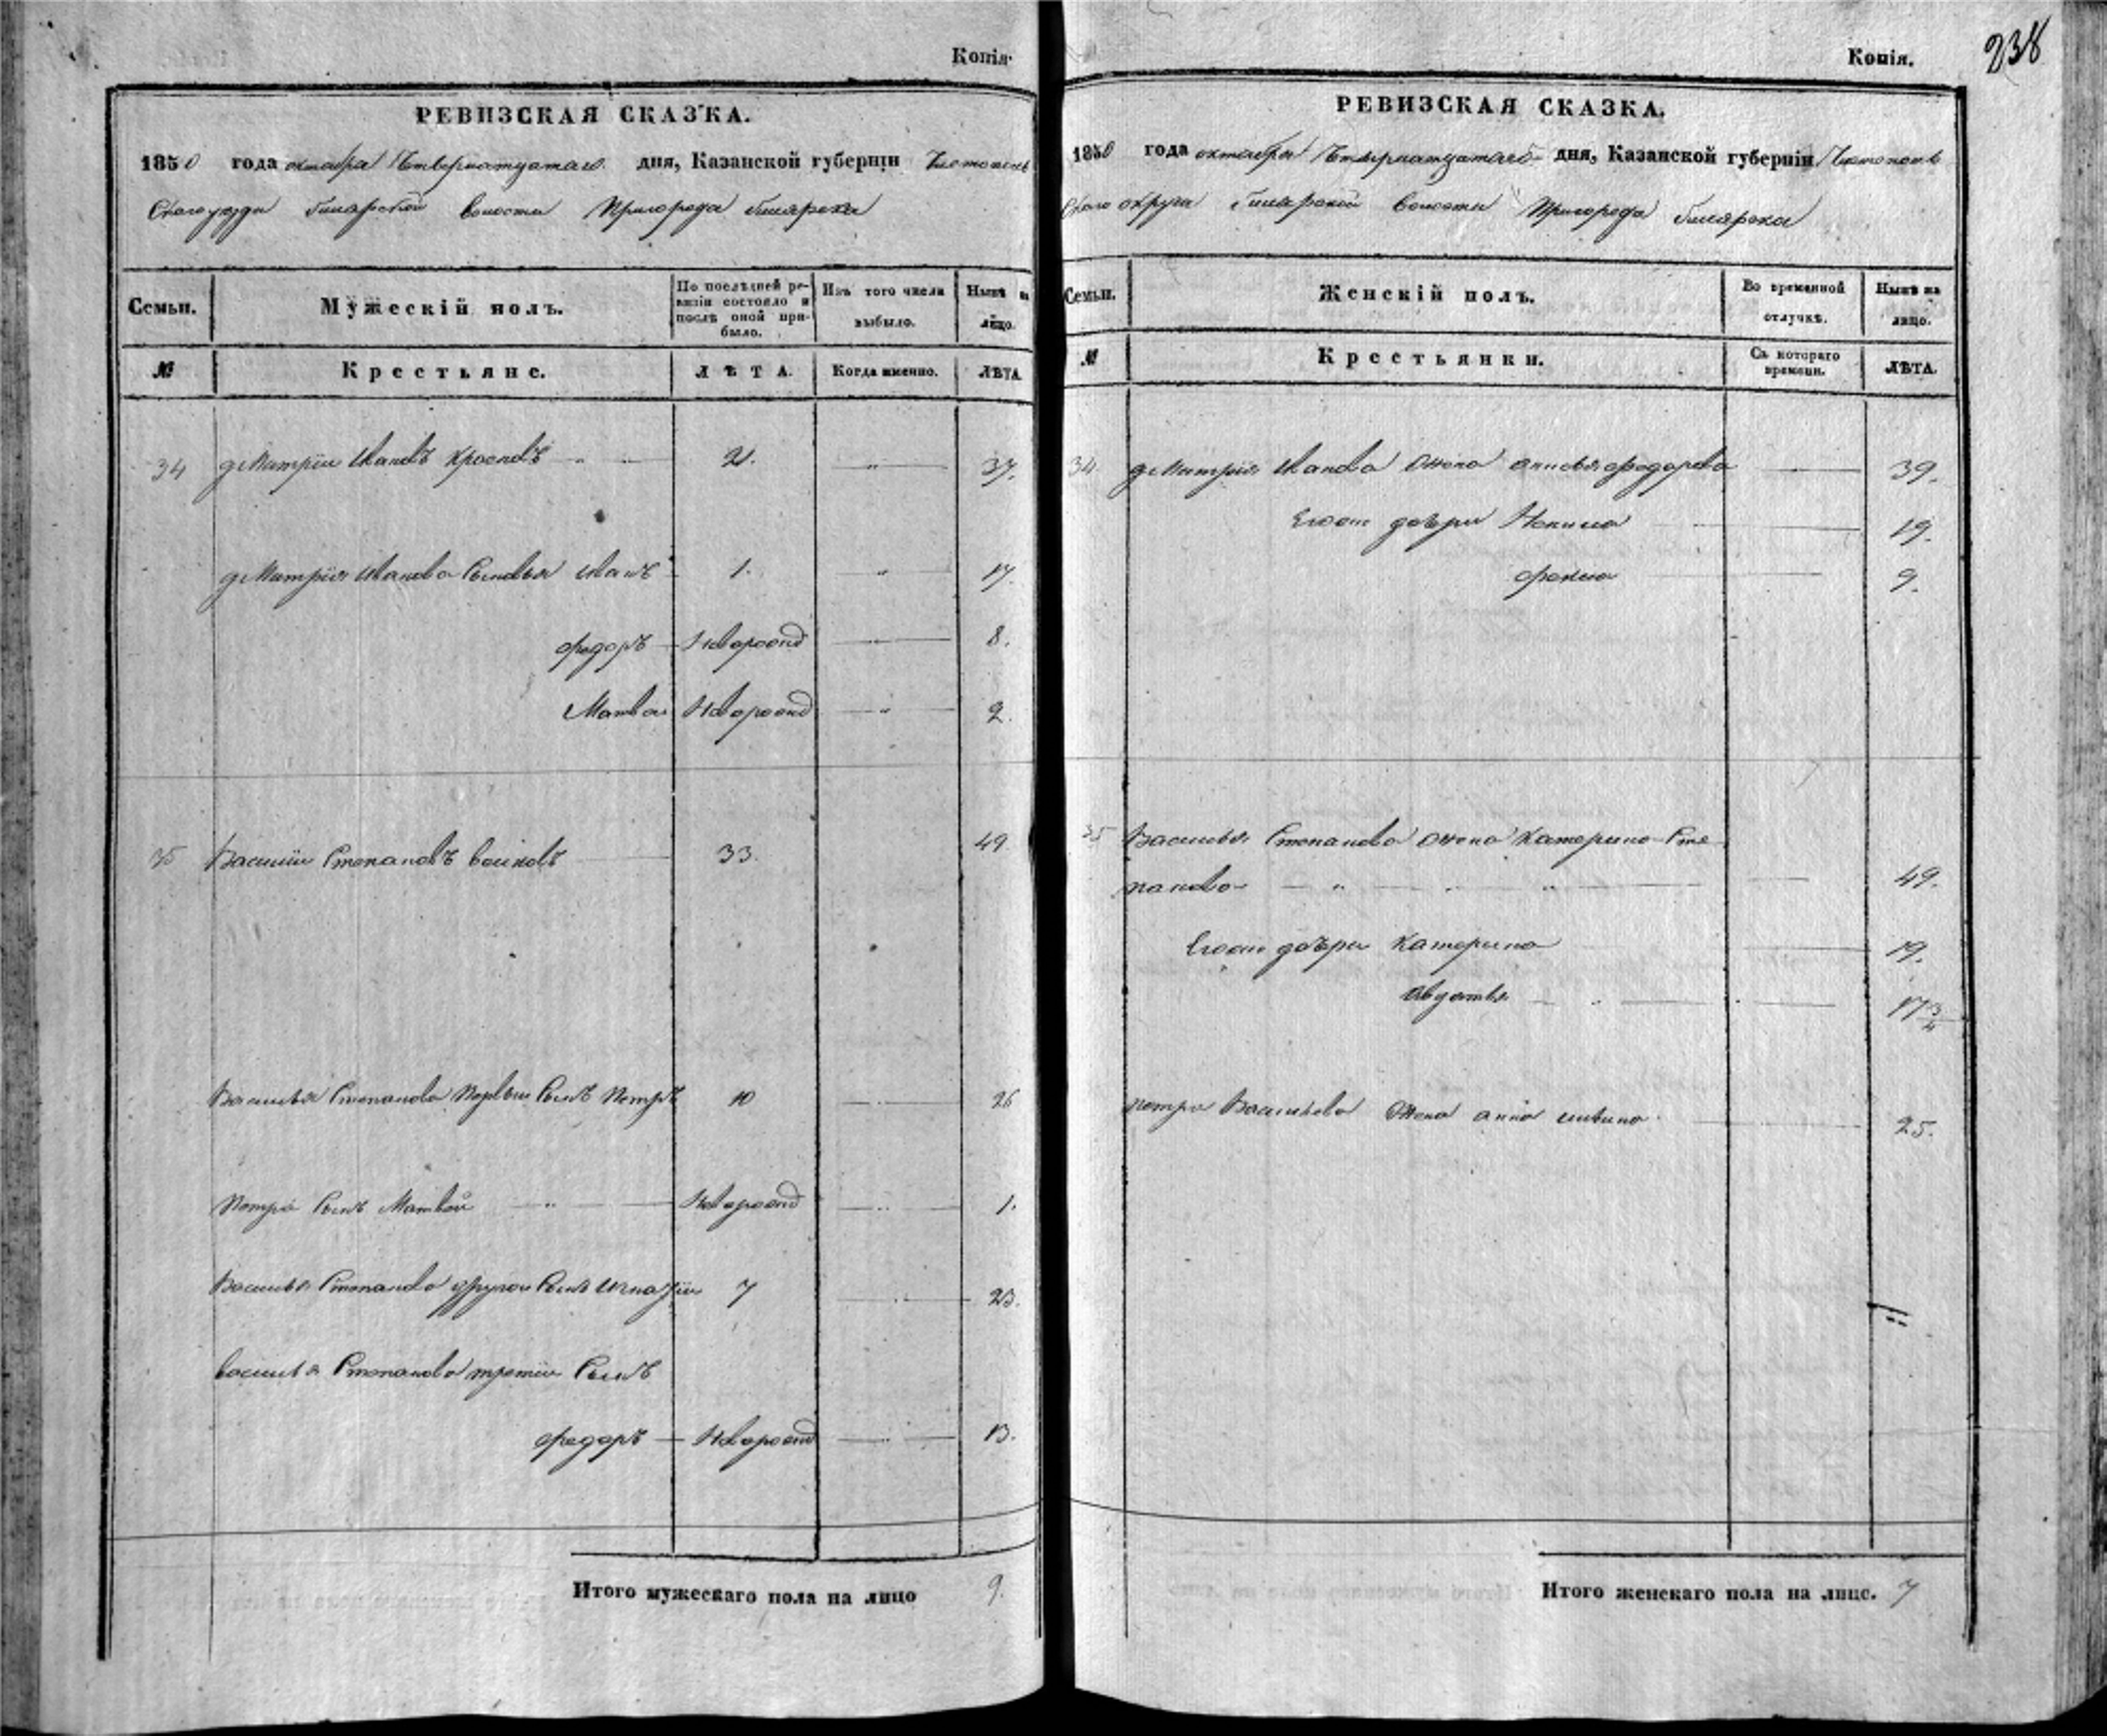 Копія.
РЕВИЗСКАЯ СКАЗКА.
1850 года октября Четвертатцатаго дня, Казанской губерніи Чистополь
Скаго уезда билярской волости Пригорода билярска
Семьи.
Мужескій полъ.
По послѣдней ре-
визіи состояло и
послѣ оной при-
было.
Изъ того числа
выбыло.
Нынѣ на
лицо.
№
Крестьяне.
ЛѢТА.
Когда именно.
ЛѢТА.
34 дмитрiи Ивановъ 21. " 37.
дмитрія Иванова Сыновья Иванъ 1. " 17.
федоръ Новорожд " 8.
Матвеи Новорожд " 2.
35 Василiи Степановъ 33. 49.
Василья Степанова Первыи Сынъ Петръ 10 26
Петра Сынъ Матвѣй " Новорожд 1.
Василья Степанова другои Сынъ Игнатіи 7 23.
василья Степанова третiи Сынъ
федоръ Новорожд 13.
Итого мужескаго пола на лицо 9.
Копія.
238
РЕВИЗСКАЯ СКАЗКА.
1850 года октября Четвертатцатаго дня, Казанской губерніи Чистополь
Скаго округа билярской волости Пригорода билярска
Семьи.
Женскій полъ.
Во временной
отлучкѣ.
Нынѣ на
лицо.
№
Крестьянки.
Съ котораго
времени.
ЛѢТА.
34 дмитрія Иванова жена федорова 39.
Егоже дочери 19.
9.
35 Василья Степанова жена Катерина Сте
панова " " 49.
Егоже дочери Катерина 19.
Авдотья 17 3/4
петра Васильева жена анна 25.
Итого женскаго пола на лицо. 7